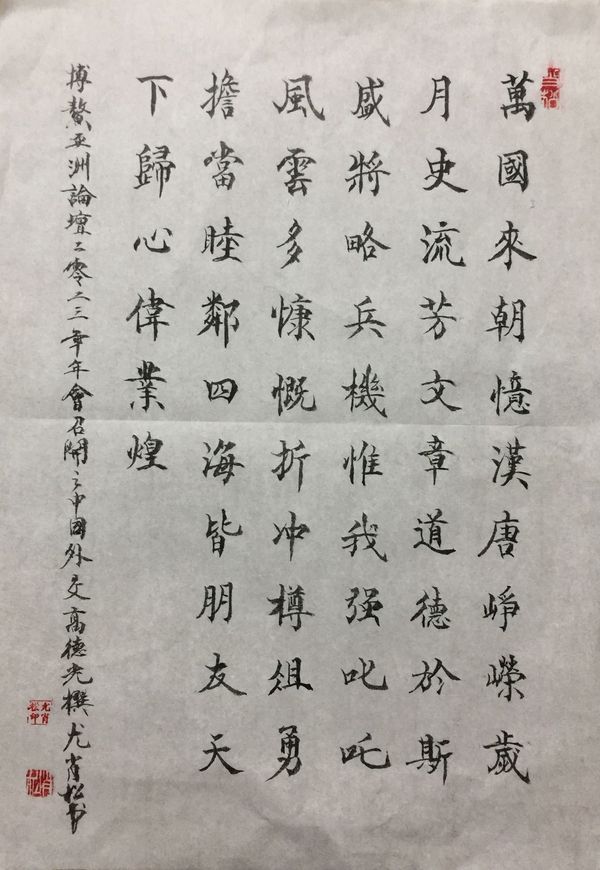 萬國來朝憶漢唐崢嶸歲
月史流芳文章道德於斯
盛將略兵機惟我强叱吒
風雲多慷慨折冲樽俎勇
擔當睦鄰四海皆朋友天
下歸心偉業煌
博鰲亚洲論壇二零二三年年會召開之中國外交高德光撰尤肖松书